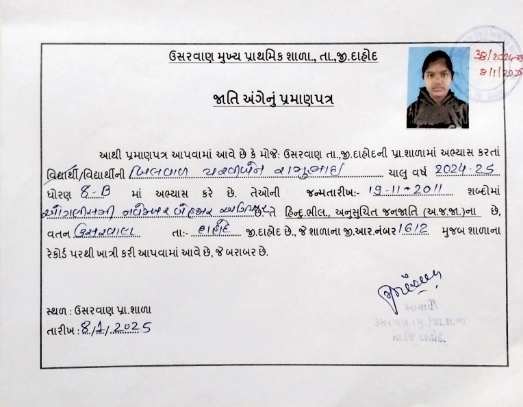 ઉસરવાણ મુખ્ય પ્રાથમિક શાળા., તા.,જી.દાહોદ
જાતિ અંગેનું પ્રમાણપત્ર
આથી પ્રમાણપત્ર આપવામાં આવે છે કે મોજેઃ ઉસરવાણ તા.,જી.દાહોદની પ્રા.શાળામાં અભ્યાસ કરતાં
વિદ્યાર્થી/વિદ્યાર્થીની ચાલુ વર્ષ 2024-25
ધોરણ 8-B માં અભ્યાસ કરે છે. તેઓની જન્મતારીખઃ- 19-11-2011 શબ્દોમાં
ઓગણીસમી નવેમ્બર બે હજાર અગિયાર છે. તે હિન્દુ ભીલ., અનુસુચિત જનજાતિ (અ.જ.જા.)ના છે,
વતન ઉસરવાણ તાઃ- દાહોદ જી.દાહોદ છે., જે શાળાના જી.આર.નંબર 1612 મુજબ શાળાના
રેકોર્ડ પરથી ખાત્રી કરી આપવામાં આવે છે, જે બરાબર છે.
સ્થળ : ઉસરવાણ પ્રા.શાળા
તારીખ : 8/1/2025